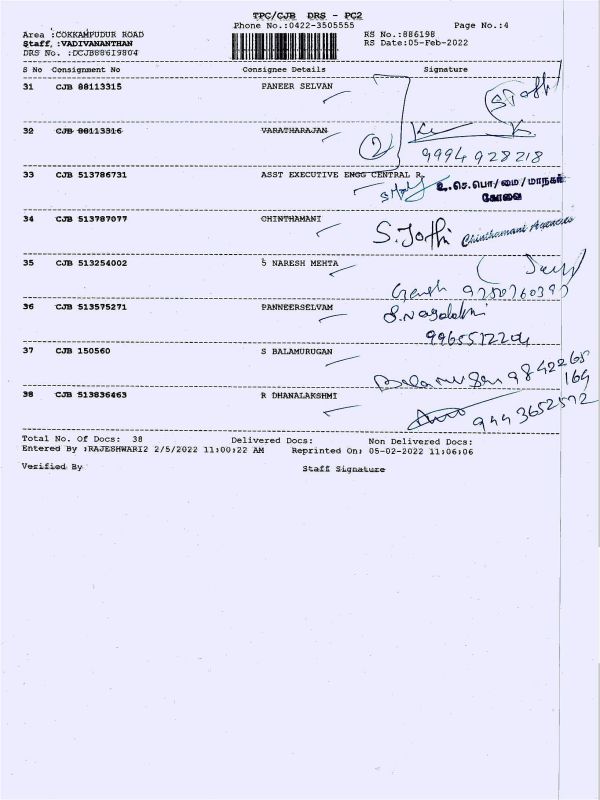 TPC/CJB DRS - PC2
Phone No.:0422-3505555 Page No.:4
Area :COKKAMPUDUR ROAD RS No.:886198
Staff :VADIVANANTHAN RS Date:05-Feb-2022
DRS No. :DCJB886I9804
S No Consignment No Consignee Details Signature
31 CJB 88113315 PANEER SELVAN
32 CJB 88113316 VARATHARAJAN
2
9994928218
33 CJB 513786731 ASST EXECUTIVE ENGG CENTRAL R
உ.செ.பொ/மை/மாநகர்
கோவை
34 CJB 513787077 CHINTHAMANI
S. Jothi Chinthamani Agencies
35 CJB 513254002 S NARESH MEHTA
36 CJB 513575271 PANNEERSELVAM
9965512204
37 CJB 150560 S BALAMURUGAN
Balamurugan 9842265
164
38 CJB 513836463 R DHANALAKSHMI
9443652572
Total No. Of Docs: 38 Delivered Docs: Non Delivered Docs:
Entered By :RAJESHWARI2 2/5/2022 11:00:22 AM Reprinted On: 05-02-2022 11:06:06
Verified By Staff Signature